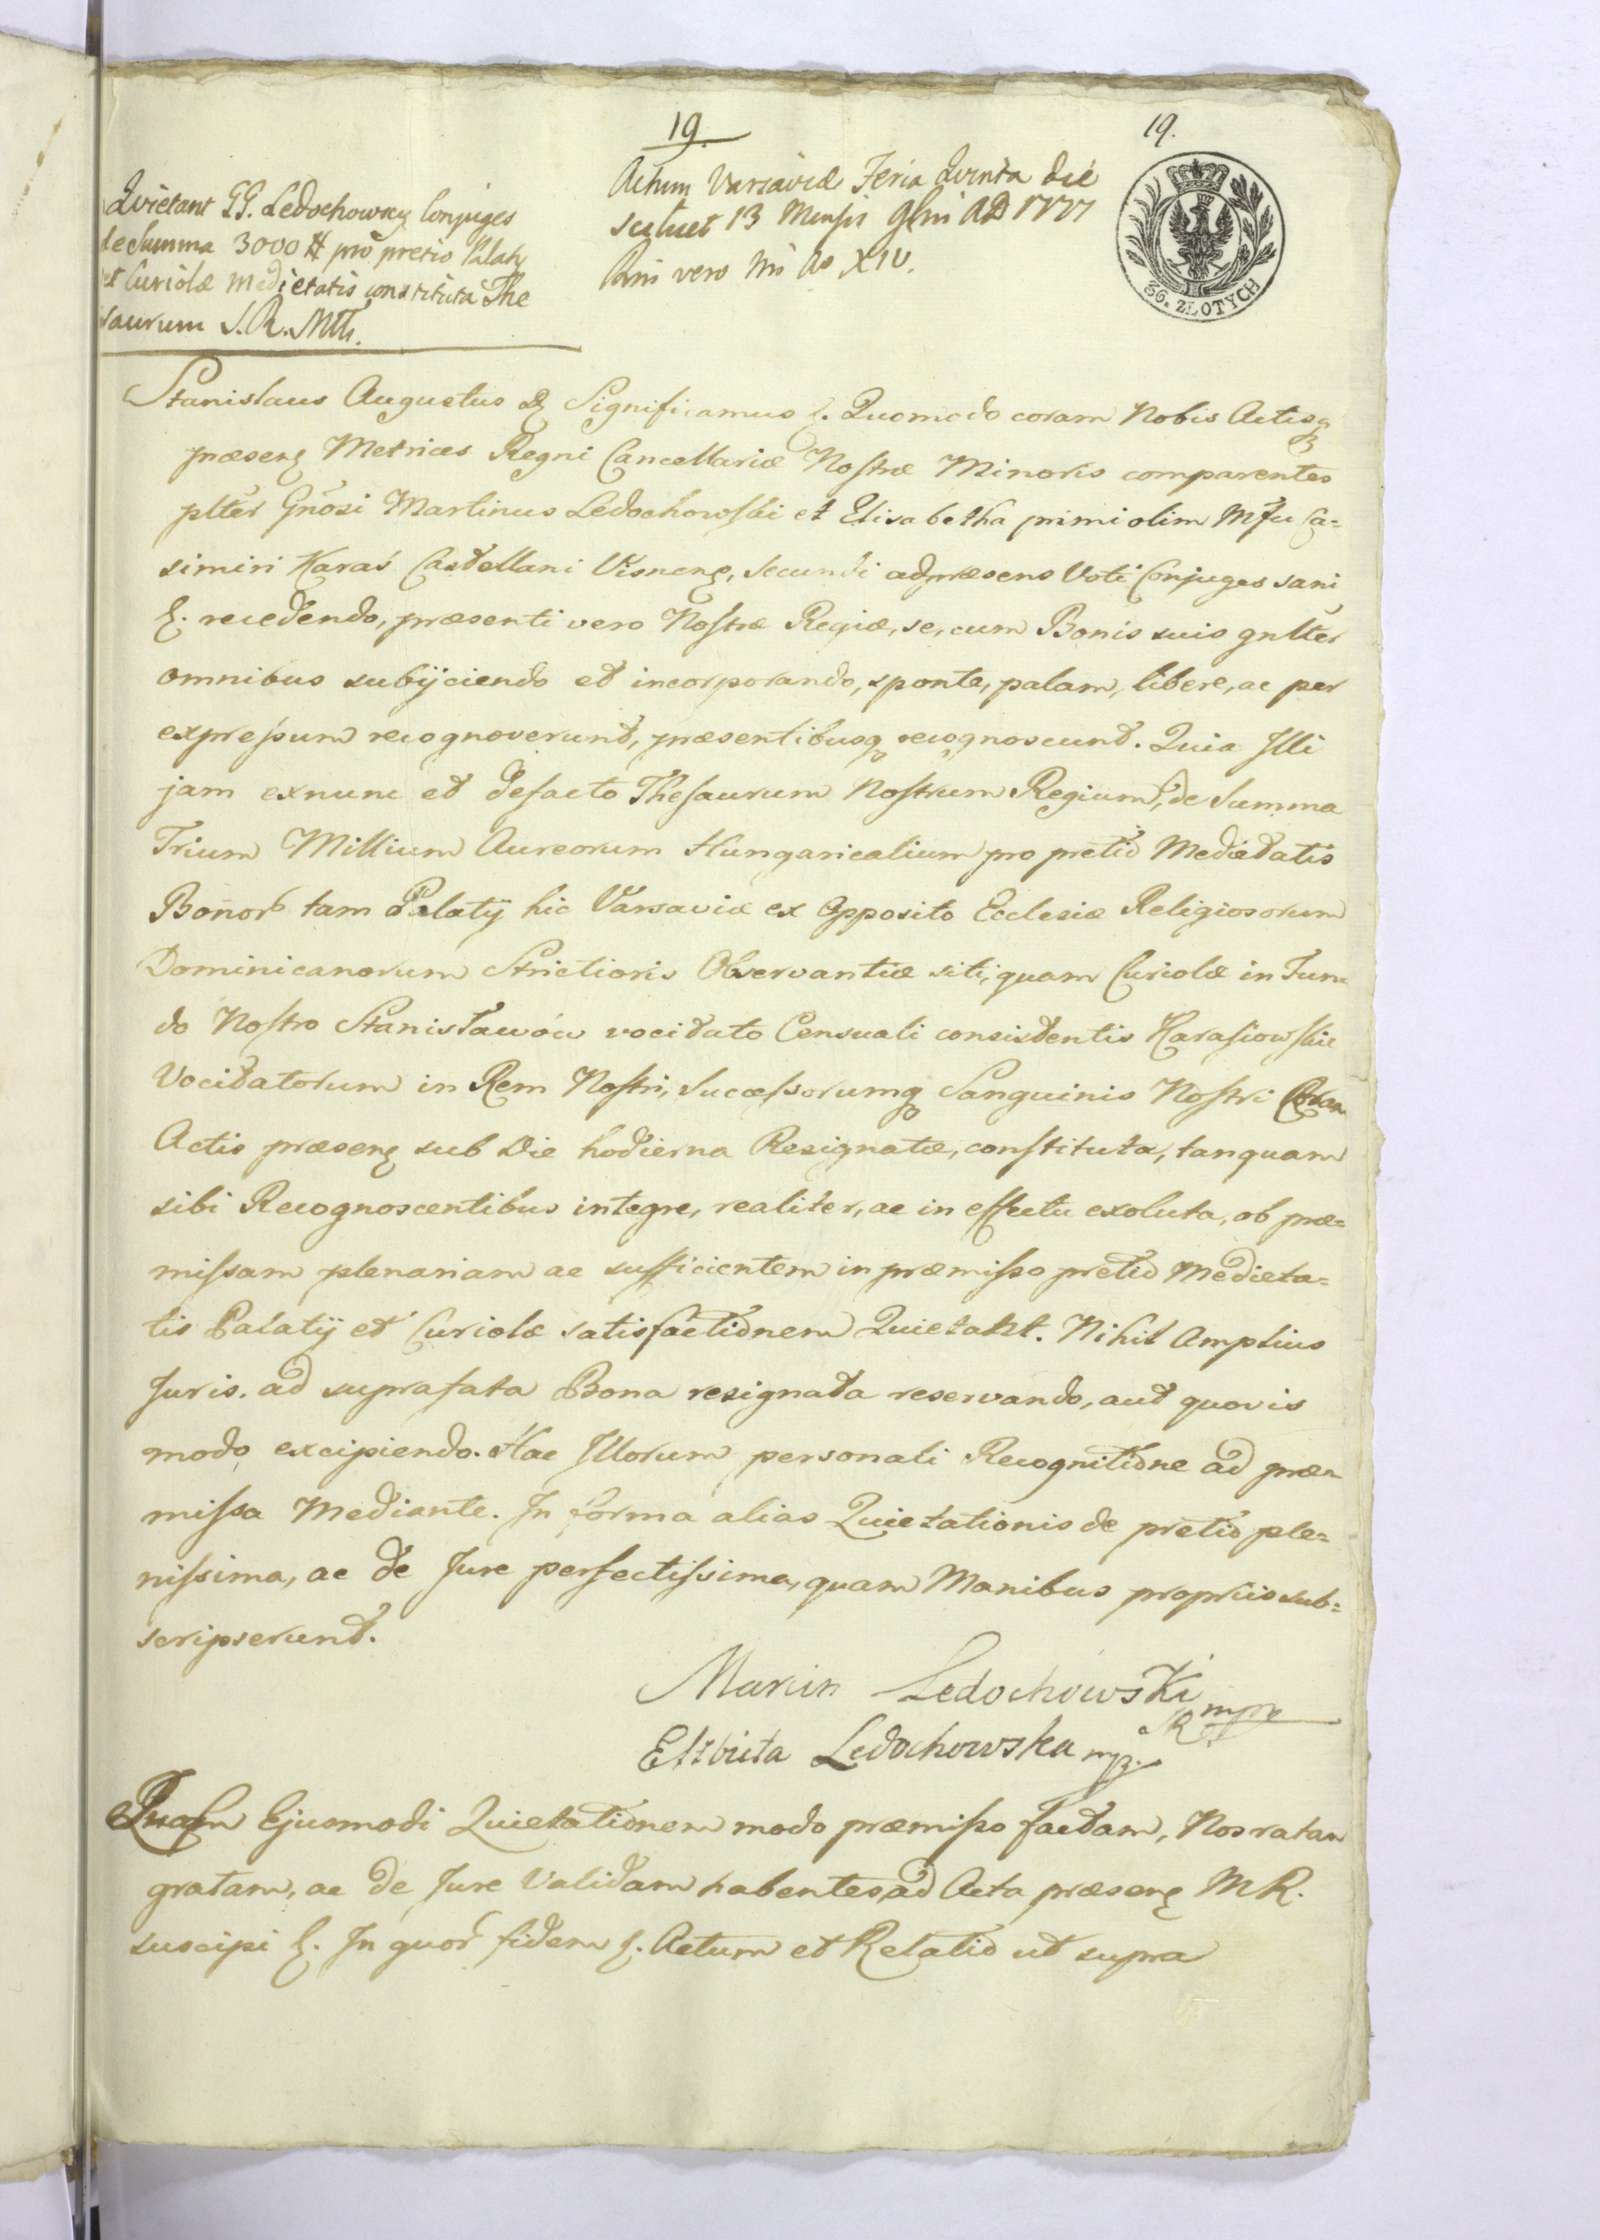 19.
19.
Quietant GG. Ledochowscy Conjuges
de Summa 3000 # pro pretio Palatÿ
et Curiolæ medietatis constituta The
saurum S. R. Mtis.
Actum Varsaviæ Feria Quinta die
scilicet 13 Mensis 9bris AD 1777
Rni vero Nri Ao XIV.
36. ZŁOTYCH
Stanislaus Augustus &. Significamus &. Quomodo coram Nobis Actisq
præsen Metrices Regni Cancellariæ Nostræ Minoris comparentes
plter Gnosi Martinus Ledochowski et Elisabetha primi olim Mfci Ca=
simiri Karaś Castellani Visnen, Secundi adpræsens Voti Conjuges sani
&. recedendo, præsenti vero Nostræ Regiæ, se, cum Bonis suis gnlter
omnibus subijciendo et incorporando, sponte, palam, libere, ac per
expressum recognoverunt, præsentibusq recognoscunt. Quia Illi
jam exnunc et defacto Thesaurum Nostrum Regium, de Summa
Trium Millium Aureorum Hungaricalium pro pretio Medietatis
Bonor tam Palatij hic Varsaviæ ex Opposito Ecclesiæ Religiosorum
Dominicanorum Strictioris Observantiæ siti, quam Curiolæ in Fun=
do Nostro Stanisławów vocitato Censuali consistentis Karasiowskie
Vocitatorum in Rem Nostri, Successorumq Sanguinis Nostri Coram
Actis præsen sub Die hodierna Resignatæ, constituta, tanquam
sibi Recognoscentibus integre, realiter, ac in effectu exoluta, ob præ=
missam plenariam ac sufficientem in præmisso pretio Medieta=
tis Palatij et Curiolæ satisfactionem Quietant. Nihil Amplius
Juris. ad suprafata Bona resignata reservando, aut quovis
modo excipiendo. Hac Illorum personali Recognitione ad præ=
missa Mediante. In forma alias Quietationis de pretio ple=
nissima, ac de Jure perfectissima, quam Manibus propriis sub=
scripserunt.
Marcin Ledochowski mpp
Elzbieta Ledochowska mp.
Quam Ejusmodi Quietationem modo præmisso factam, Nos ratam
gratam, ac de Jure Validam habentes, ad Acta præsen M R.
suscipi &. In quor fidem &. Actum et Relatio ut supra